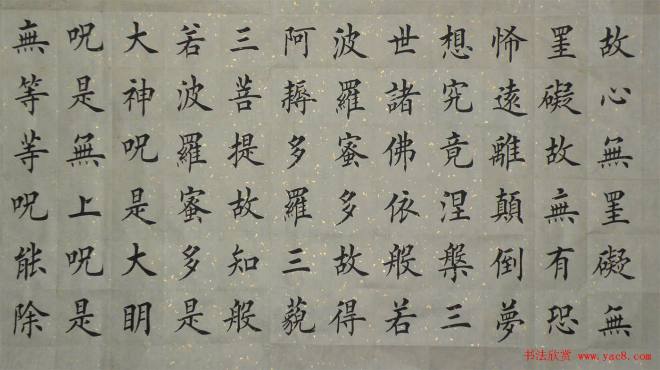 故心無罣礙無
罣礙故無有恐
怖遠離顛倒夢
想究竟涅槃三
世諸佛依般若
波羅蜜多故得
阿耨多羅三藐
三菩提故知般
若波羅蜜多是
大神呪是大明
呪是無上呪是
無等等呪能除
书法欣赏 www.yac8.com